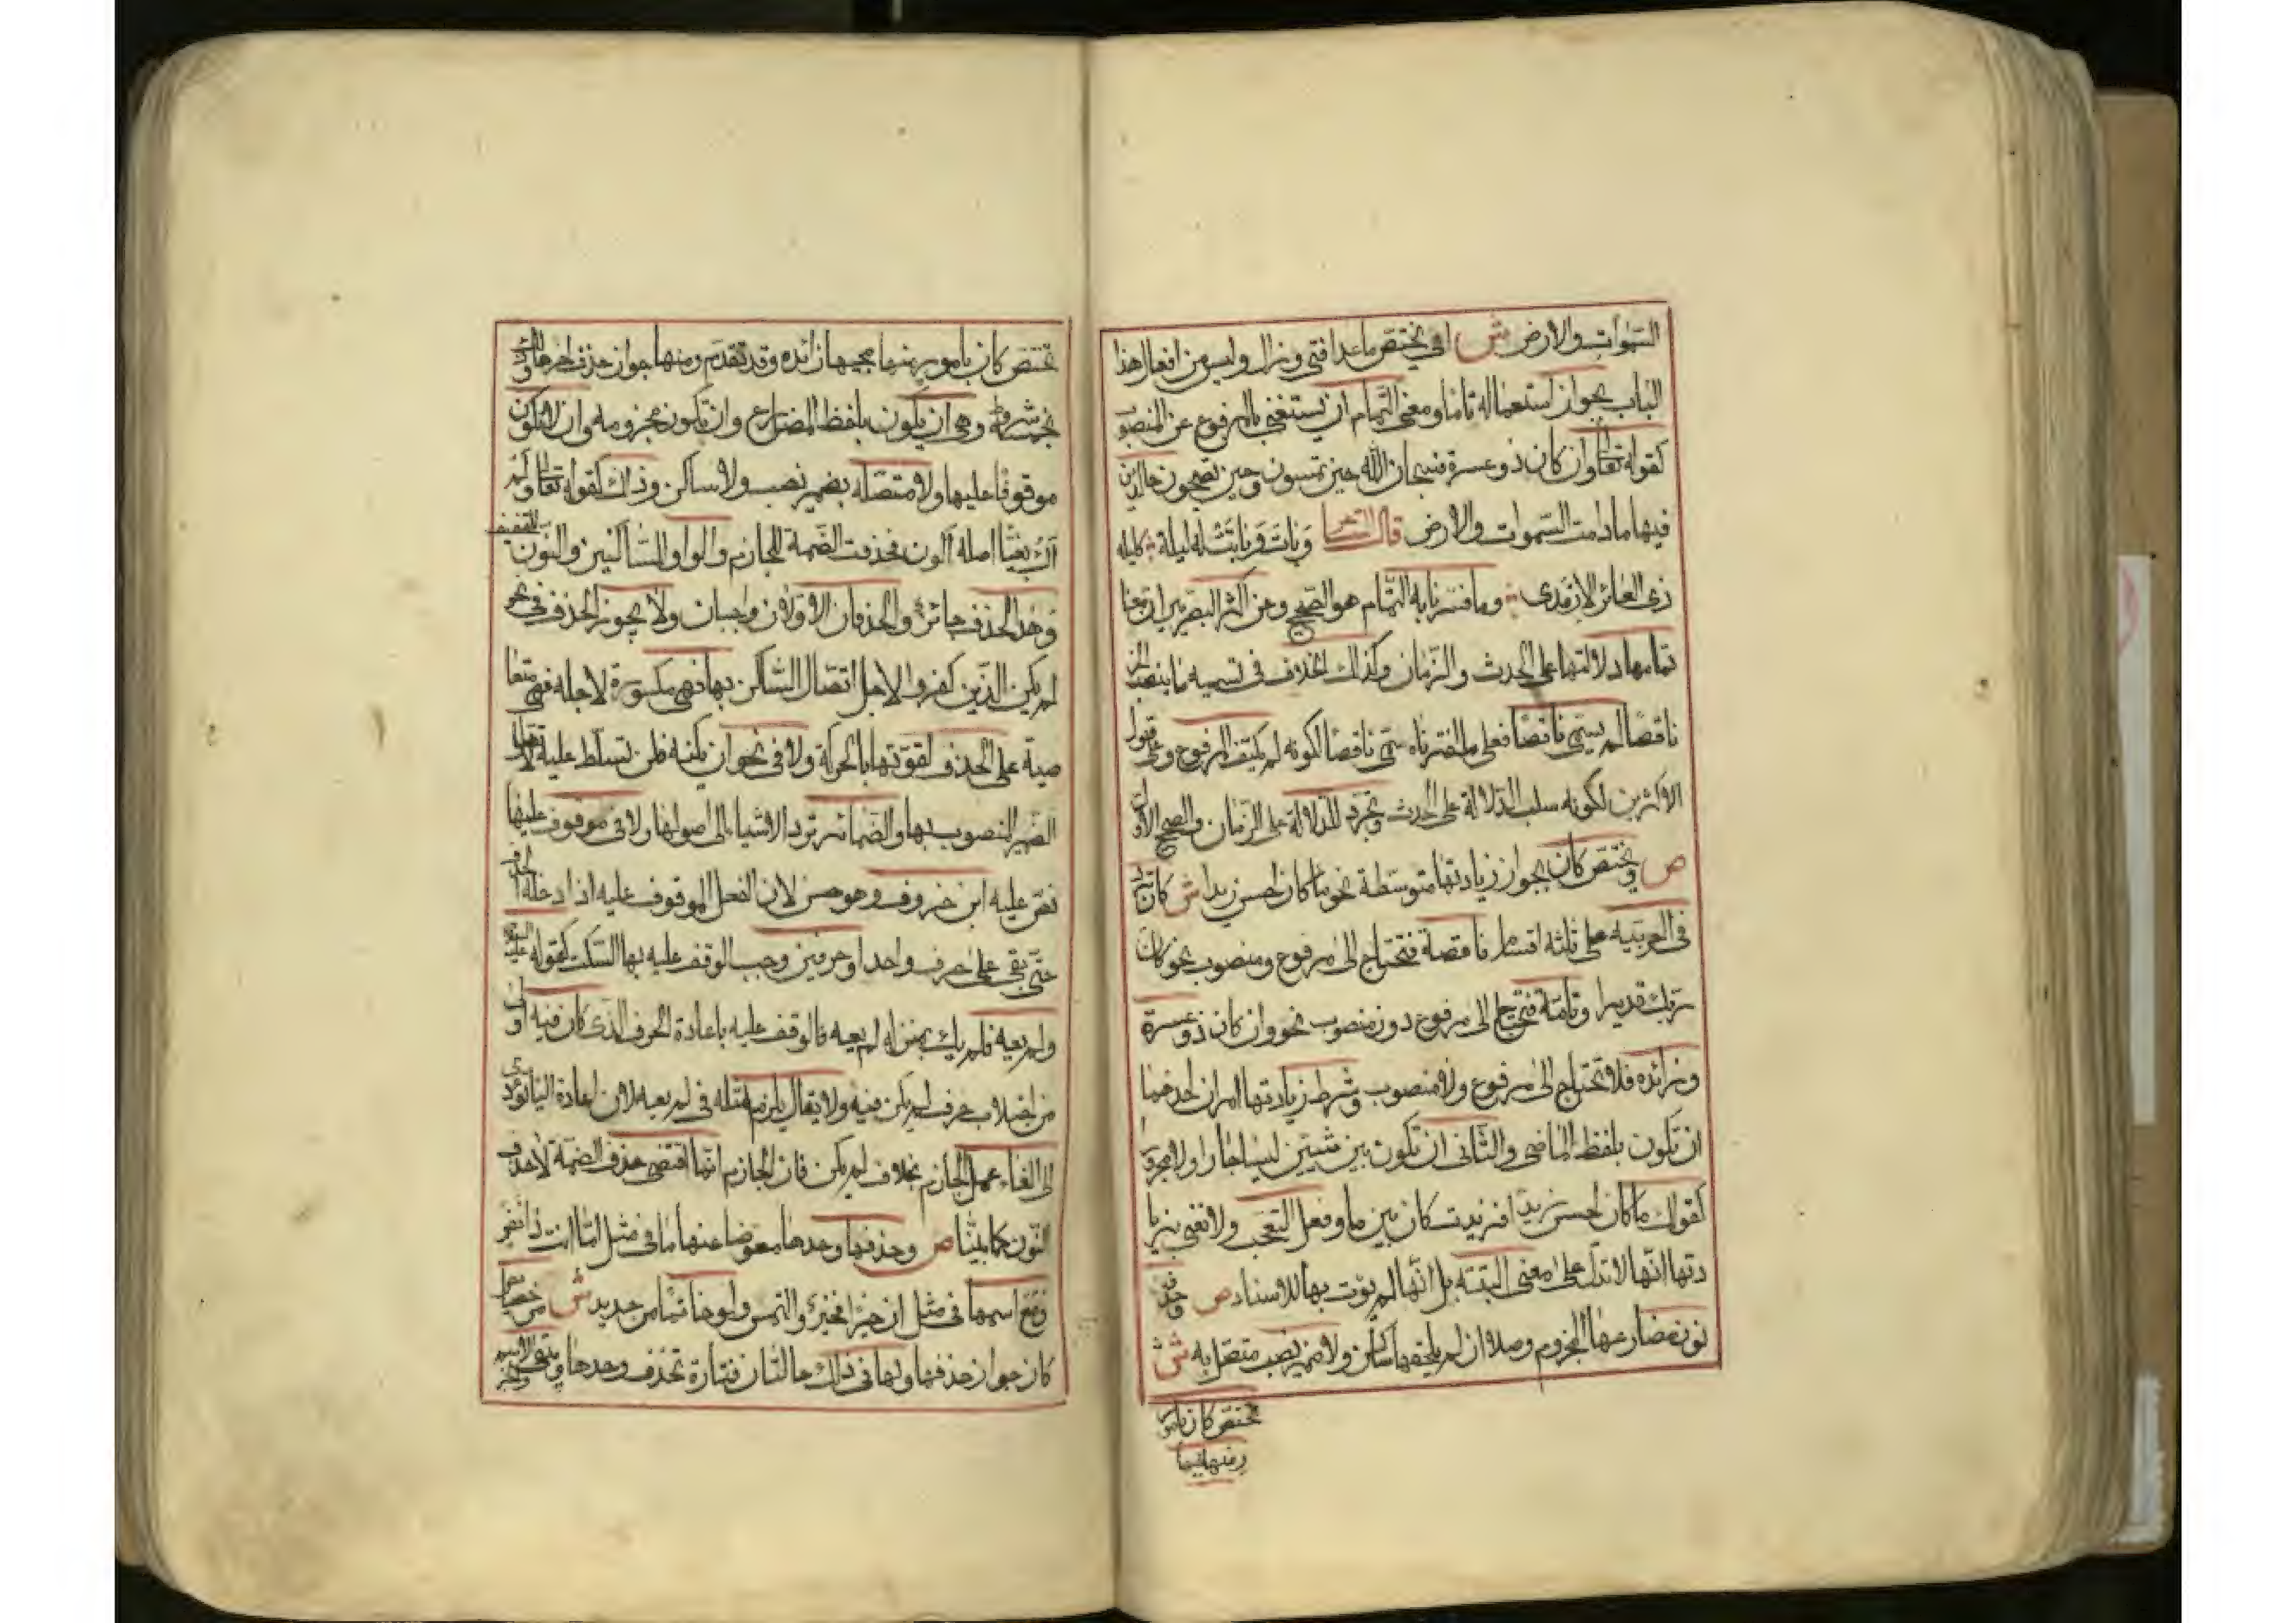 السموات والارض ش اى يختص ما عدا فتى وزال وليس من افعال هذا
الباب بجواز استعماله تاما ومعنى التمام ان يستغنى بالمرفوع عن المنصوب
كقوله تعالى وان كان ذو عسرة فسبحان الله حين تمسون وحين تصبحون خالدين
فيها ما دامت السموات والارض قال الشاعر وبات وباتت له ليلة كليلة
ذى العائر الارمدى وما فسرنا به التمام هو الصحيح وعن اكثر البصريين ان معنا
تمامها دلالتها على الحدث والزمان وكذلك الخلاف فى تسميه ما ينصب الخبر
ناقصا لم يسمى ناقصا فعلى ما فسرناه سمى ناقصا لكونه لم يكتف بالمرفوع وعلى قول
الاكثرين لكونه سلب الدلالة على الحدث وتجرد للدلالة على الزمان والصحيح الاول
ص ويختص كان بجواز زيادتها متوسطة نحو ما كان احسن زيدا ش كان ترد
فى العربيه على ثلثه اقسام ناقصة فتحتاج الى مرفوع ومنصوب نحو كان
ربك قديرا وتامة فتحتاج الى مرفوع دون منصوب نحو وان كان ذو عسرة
وزائده فلا تحتاج الى مرفوع ولا منصوب وشرط زيادتها امران احدهما
ان تكون بلفظ الماضى والثانى ان تكون بين شيئين ليسا جارا ولا مجرورا
كقولك ما كان احسن زيدا فزيدت كان بين ما وفعل التعجب ولا نعنى بزيا
دتها انها لا تدل على معنى البتة بل انها لم يؤت بها للاسناد ص وحذف
نون مضارعها المجزوم وصلا ان لم يلحقها ساكن ولا ضمير نصب متصل به ش
تختص كان بامو
ر منها
تختص كان بامور منها مجيها زائده وقد تقدم ومنها جواز حذف اخرها وذلك
بخمسة شروط وهى ان يكون بلفظ المضارع وان تكون مجزومه وان لا تكون
موقوفا عليها ولا متصله بضمير نصب ولا ساكن وذلك كقوله تعالى ولم
اك بغيا اصله اكون فحذفت الضمة للجازم والواو للساكنين والنون للتخفيف
وهذا الحذف جائز والحذفان الاولان واجبان ولا يجوز الحذف فى نحو
لم يكن الذين كفروا لاجل اتصال الساكن بها فهى مكسورة لاجله فهى متعا
صية على الحذف لقوتها بالحركة ولا فى نحو ان يكنه فلن تسلط عليه لاتصال
الضمير المنصوب بها والضمائر ترد الاشياء الى اصولها ولا فى موقوف عليها
نص عليه ابن خروف وهو حسن لان الفعل الموقوف عليه اذا دخله الحذف
حتى بقى على حرف واحد او حرفين وجب الوقف عليه بها السكت كقوله عه
ولم يعيه فلم يك بمنزلة لم يعيه فالوقف عليه باعادة الحرف الذى كان فيه اولى
من اجتلاب حرف لم يكن فيه ولا يقال يلزم مثله فى لم يعيه لان اعادة اليا تؤدى
الى الغاء عمل الجازم بخلاف لم يكن فان الجازم انما اقتضى حذف الضمة لا حذف
النون كما بينا ص وحذفها وحدها معوضا عنها ما فى مثل اما انت ذا نفر
ومع اسمها فى مثل ان خيرا فخير والتمس ولو خاتما من حديد ش من خصايص
كان جواز حذفها ولها فى ذلك حالتان فتارة تحذف وحدها ويبقى الاسم والخبر